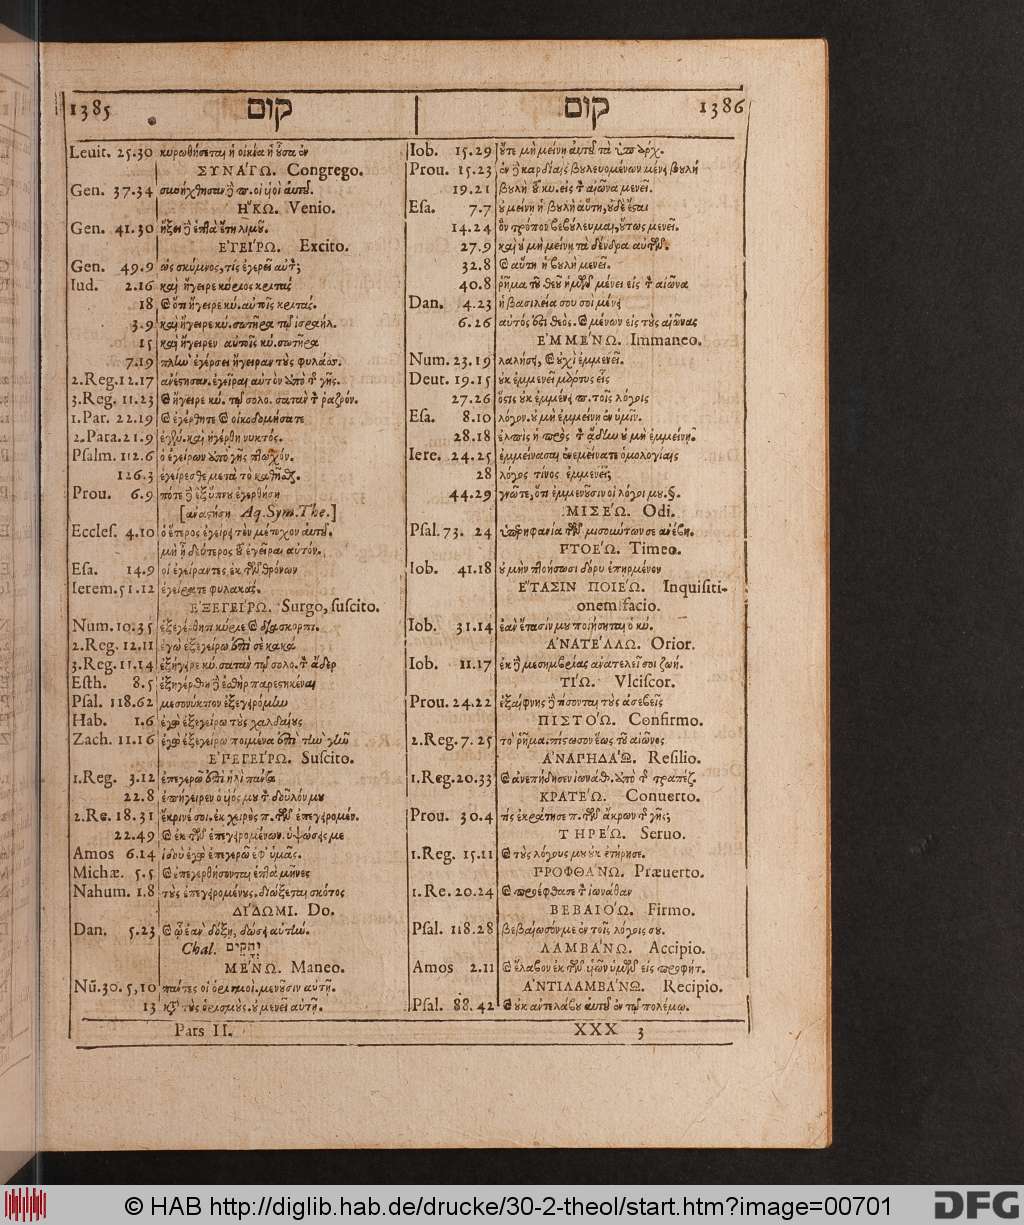 1385 קום
Leuit. 25.30 κυρωθήσεται ἡ οἰκία ἡ οὖσα ἐν
ΣΥΝΑΓΩ. Congrego.
Gen. 37.34 συνήχθησαν
Η῞ΚΩ. Venio.
Gen. 41.30 ἥξει ἑπτὰ ἔτη λιμοῦ.
ΕΓΕΙΡΩ. Excito.
Gen. 49.9 ὡς σκύμνος, τίς ἐγερεῖ αὐτόν;
Iud. 2.16 καὶ ἤγειρε κύριος κριτάς
18 ὅτι ἤγειρε κύ. αὐτοῖς κριτάς.
3.9 καὶ ἤγειρε κύ. σωτῆρα τῷ ἰσραήλ.
15 καὶ ἤγειρεν αὐτοῖς κύ. σωτῆρα
7.19 ἐγέρσει ἤγειραν τοὺς φυλάσ.
2.Reg.12.17 ἀνέστησαν. ἐγεῖραι αὐτὸν ἀπὸ τῆς γῆς.
3.Reg. 11.23 ἤγειρε κύ. τῷ σολο. σατὰν τὸν ῥαζρόν.
1.Par. 22.19 ἐγέρθητε οἰκοδομήσατε
2.Para.21.9 καὶ ἠγέρθη νυκτός.
Psalm. 112.6 ὁ ἐγείρων ἀπὸ γῆς πτωχόν.
126.3 ἐγείρεσθε μετὰ τὸ καθῆσθ.
Prou. 6.9 πότε ἐξ ὕπνου ἐγερθήσῃ
[ἀναστήσῃ Aq. Sym. The.]
Ecclef. 4.10 ὁ ἕτερος ἐγερεῖ τὸν μέτοχον αὐτοῦ.
μὴ ᾖ δεύτερος τοῦ ἐγεῖραι αὐτόν.
Esa. 14.9 οἱ ἐγείραντες ἐκ τῶν θρόνων
Ierem.51.12 ἐγείρατε φυλακάς.
ΕΞΕΓΕΙΡΩ. Surgo, suscito.
Num.10.35 ἐξεγέρθητι κύριε διασκορπι.
2.Reg. 12.11 ἐγὼ ἐξεγείρω ἐπὶ σὲ κακά
3.Reg.11.14 ἐξήγειρε κύ. σατὰν τῷ σολο. τὸν ἄδερ
Esth. 8.5 ἐξηγέρθη ἐσθὴρ παρεστηκέναι
Psal. 118.62 μεσονύκτιον ἐξεγειρόμην
Hab. 1.6 ἐγὼ ἐξεγείρω τοὺς χαλδαίους
Zach. 11.16 ἐγὼ ἐξεγείρω ποιμένα ἐπὶ τὴν γῆν
ΕΠΕΓΕΙΡΩ. Suscito.
1.Reg. 3.12 ἐπεγερῶ ἐπὶ ἠλὶ πάντα
22.8 ἐπήγειρεν ὁ υἱός μου τὸν δοῦλόν μου
2.Re. 18.31 ἔκρινέ σοι. ἐκ χειρὸς π. τῶν ἐπεγειρομέν.
22.49 ἐκ τῶν ἐπεγειρομένων. ὑψώσεις με
Amos 6.14 ἰδοὺ ἐγὼ ἐπεγερῶ ἐφ᾽ ὑμᾶς.
Michæ. 5.5 ἐπεγερθήσονται ἑπτὰ
Nahum. 1.8 τοὺς ἐπεγειρομένους. διώξεται σκότος
ΔΙΔΩΜΙ. Do.
Dan. 5.23 ᾧ ἐὰν δόξῃ, δώσει αὐτήν.
Chal. יהקים
ΜΕΝΩ. Maneo.
Nū.30. 5,10 πάντες οἱ ὁρισμοί. μενοῦσιν αὐτῇ.
13 τοὺς ὁρισμούς. οὐ μενεῖ αὐτῇ.
Pars II.
קום 1386
Iob. 15.29 οὔτε μὴ μείνῃ αὐτοῦ τὰ ὑπάρχ.
Prou. 15.23 ἐν καρδίαις βουλευομένων μένει βουλή
19.21 βουλὴ τοῦ κυ. εἰς τὸν αἰῶνα μενεῖ.
Esa. 7.7 οὐ μείνῃ ἡ βουλὴ αὕτη, οὐδὲ ἔσται
14.24 ὃν τρόπον βεβούλευμαι, οὕτως μενεῖ.
27.9 καὶ οὐ μὴ μείνῃ τὰ δένδρα αὐτῶν.
32.8 αὕτη ἡ βουλὴ μενεῖ.
40.8 ῥῆμα τοῦ θεοῦ ἡμῶν μένει εἰς τὸν αἰῶνα
Dan. 4.23 ἡ βασιλεία σου σοι μένει
6.26 αὐτός ἐστι θεός. μένων εἰς τοὺς αἰῶνας
ΕΜΜΕΝΩ. Immaneo.
Num. 23.19 λαλήσει, οὐχὶ ἐμμενεῖ.
Deut. 19.15 οὐκ ἐμμενεῖ μάρτυς εἷς
27.26 ὅστις οὐκ ἐμμένει τοῖς λόγοις
Esa. 8.10 λόγον. οὐ μὴ ἐμμείνῃ ἐν ὑμῖν.
28.18 ἐλπὶς ἡ πρὸς τὸν ᾅδην οὐ μὴ ἐμμείνῃ.
Iere. 24.25 ἐμμείνασαι ἐνεμείνατε ὁμολογίαις
28 λόγος τίνος ἐμμενεῖ;
44.29 γνῶτε, ὅτι ἐμμενοῦσιν οἱ λόγοι μου. §.
ΜΙΣΕΩ. Odi.
Psal. 73. 24 ὑπερηφανία τῶν μισούντων σε ἀνέβη.
ΠΤΟΕΩ. Timeo.
Iob. 41.18 οὐ μὴν ποιήσωσι δόρυ ἐπηρμένον
ΕΤΑΣΙΝ ΠΟΙΕΩ. Inquisiti-
onem facio.
Iob. 31.14 ἐὰν ἔτασίν μου ποιήσηται ὁ κύ.
ΑΝΑΤΕΛΛΩ. Orior.
Iob. 11.17 ἐκ μεσημβρίας ἀνατελεῖ σοι ζωή.
ΤΙΩ. Vlciscor.
Prou. 24.22 ἐξαίφνης τίσονται τοὺς ἀσεβεῖς
ΠΙΣΤΟΩ. Confirmo.
2.Reg. 7. 25 τὸ ῥῆμα. πίστωσον ἕως τοῦ αἰῶνος
ΑΝΑΠΗΔΑΩ. Resilio.
1.Reg.20.33 ἀνεπήδησεν ἰωνάθ. ἀπὸ τῆς τραπέζ.
ΚΡΑΤΕΩ. Conuerto.
Prou. 30.4 τίς ἐκράτησε π. τῶν ἄκρων τῆς γῆς;
ΤΗΡΕΩ. Seruo.
1.Reg. 15.11 τοὺς λόγους μου οὐκ ἐτήρησε.
ΠΡΟΦΘΑΝΩ. Præuerto.
1. Re. 20.24 προέφθασε τὸν ἰωνάθαν
ΒΕΒΑΙΟΩ. Firmo.
Psal. 118.28 βεβαίωσόν με ἐν τοῖς λόγοις σου.
ΛΑΜΒΑΝΩ. Accipio.
Amos 2.11 ἔλαβον ἐκ τῶν υἱῶν ὑμῶν εἰς προφήτ.
ΑΝΤΙΛΑΜΒΑΝΩ. Recipio.
Psal. 88. 42 οὐκ ἀντελάβου αὐτοῦ ἐν τῷ πολέμῳ.
XXX 3
© HAB http://diglib.hab.de/drucke/30-2-theol/start.htm?image=00701
DFG